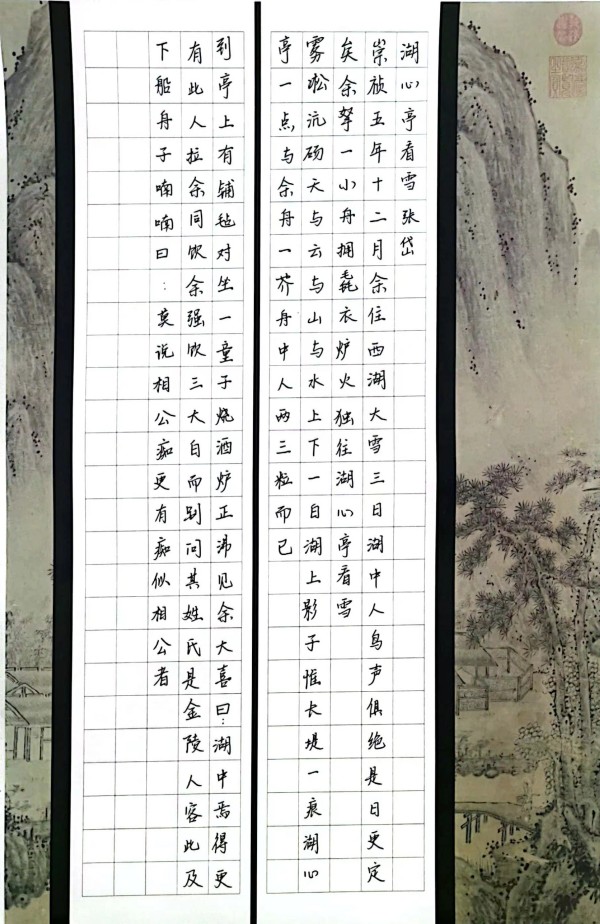 湖心亭看雪张岱
崇祯五年十二月余住西湖大雪三日湖中人鸟声俱绝是日更定
矣余拏一小舟拥毳衣炉火独往湖心亭看雪
雾凇沆砀天与云与山与水上下一白湖上影子惟长堤一痕湖心
亭一点与余舟一芥舟中人两三粒而已
到亭上有铺毡对坐一童子烧酒炉正沸见余大喜曰：湖中焉得更
有此人拉余同饮余强饮三大白而别问其姓氏是金陵人客此及
下船舟子喃喃曰：莫说相公痴更有痴似相公者